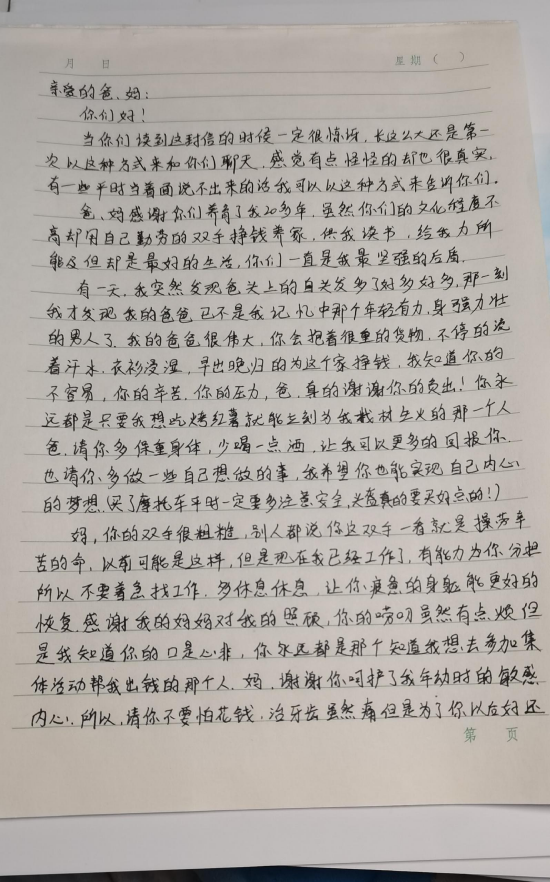 月 日 星期( )
亲爱的爸、妈:
你们好!
当你们读到这封信的时候一定很惊讶,长这么大还是第一
次以这种方式来和你们聊天,感觉有点怪怪的却也很真实,
有一些平时当着面说不出来的话我可以以这种方式来告诉你们。
爸、妈感谢你们养育了我20多年,虽然你们的文化程度不
高却用自己勤劳的双手挣钱养家,供我读书,给我力所
能及但却是最好的生活,你们一直是我最坚强的后盾。
有一天,我突然发现爸头上的白头发多了好多好多,那一刻
我才发现我的爸爸已不是我记忆中那个年轻有力,身强力壮
的男人了。我的爸爸很伟大,你会抱着很重的货物,不停的流
着汗水,衣衫浸湿,早出晚归的为这个家挣钱,我知道你的
不容易,你的辛苦,你的压力,爸,真的谢谢你的付出!你永
远都是只要我想吃烤红薯就能立刻为我栽材生火的那一个人
爸,请你多保重身体,少喝一点酒,让我可以更多的回报你.
也请你多做一些自己想做的事,我希望你也能实现自己内心
的梦想.(买了摩托车平时一定要多注意安全,头盔真的要买好点的!)
妈,你的双手很粗糙,别人都说你这双手一看就是操劳辛
苦的命,以前可能是这样,但是现在我已经工作了,有能力为你分担
所以不要着急找工作,多休息休息,让你疲惫的身躯能更好的
恢复.感谢我的妈妈对我的照顾,你的唠叨虽然有点烦但
是我知道你的口是心非,你永远都是那个知道我想去参加集
体活动帮我出钱的那个人.妈,谢谢你呵护了我年幼时的敏感
内心.所以,请你不要怕花钱,治牙齿虽然痛但是为了你以后好还
第 页